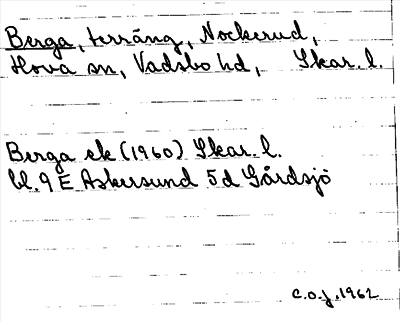 Berga, terräng, Nockerud,
Hova sn, Vadsbo hd, Skar. l.
Berga ek (1960) Skar. l.
bl. 9 E Askersund 5d Gårdsjö
C.O.J. 1962